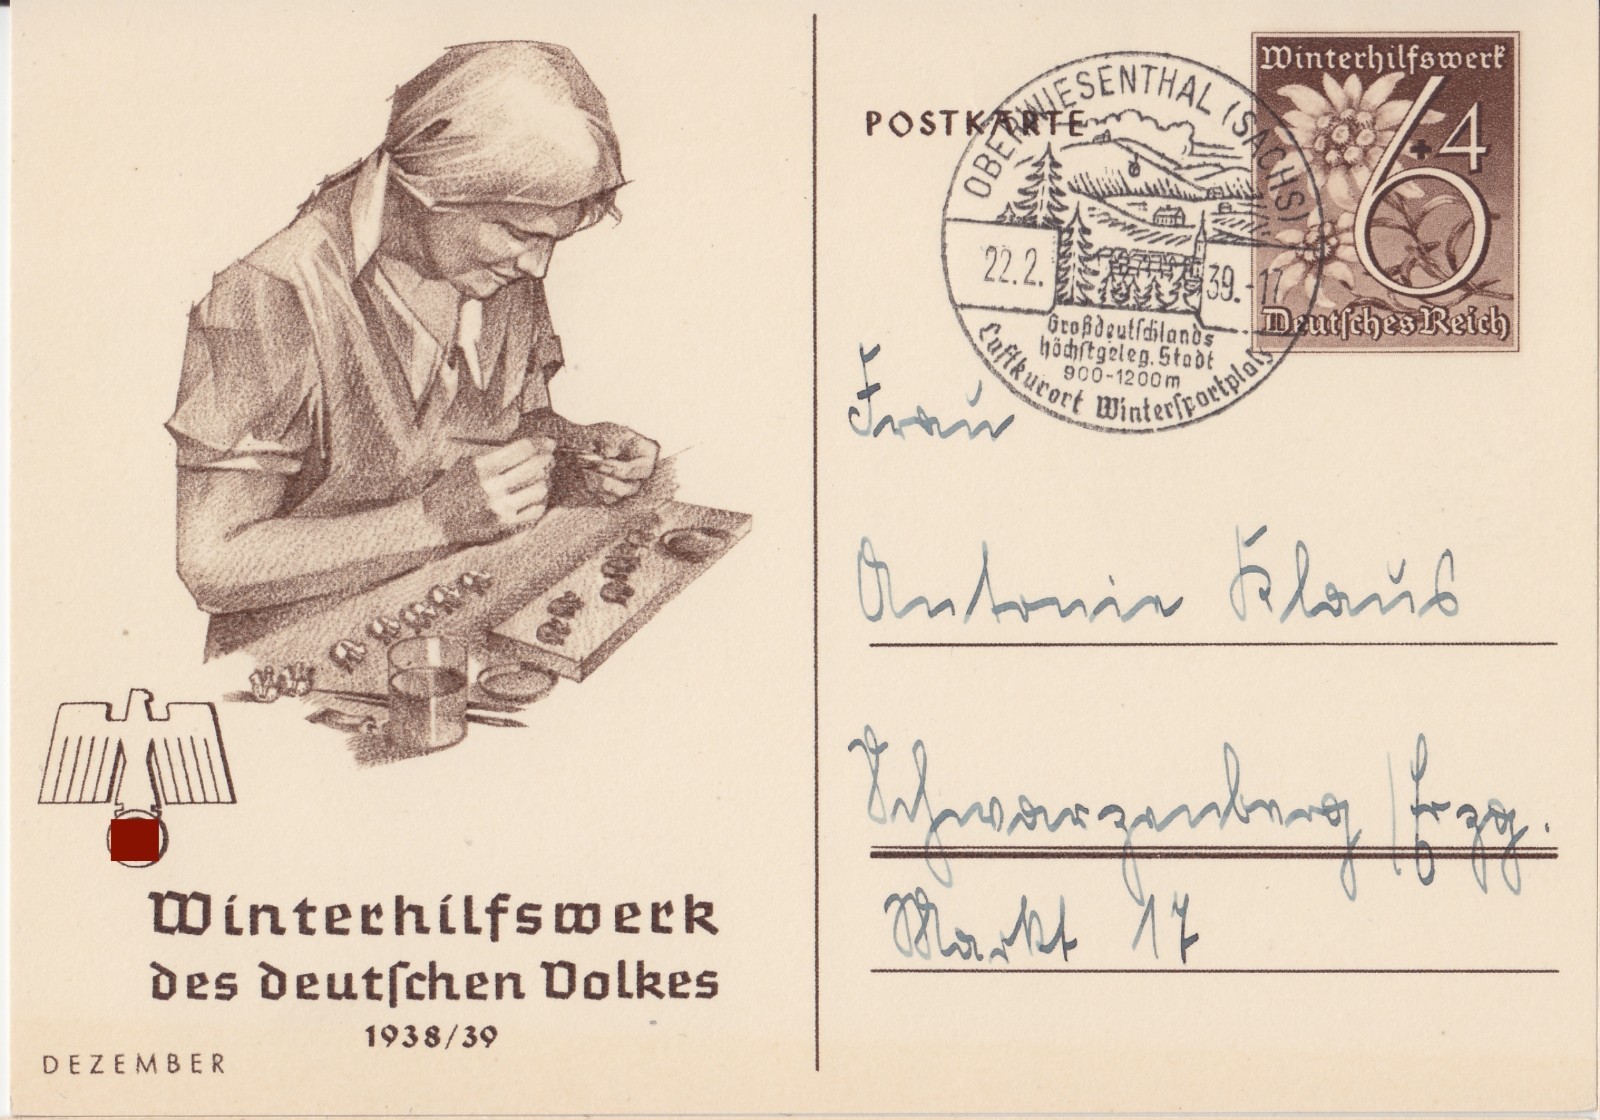 Winterhilfswerk
des deutschen Volkes
1938/39
DEZEMBER
POSTKARTE
OBERWIESENTHAL (SACHS)
22.2. 39.-17
Großdeutschlands
höchstgeleg. Stadt
900-1200m
Luftkurort Wintersportplatz
Winterhilfswerk
6+4
Deutsches Reich
Frau
Antonie Klaus
Schwarzenberg / Erzg.
Markt 17